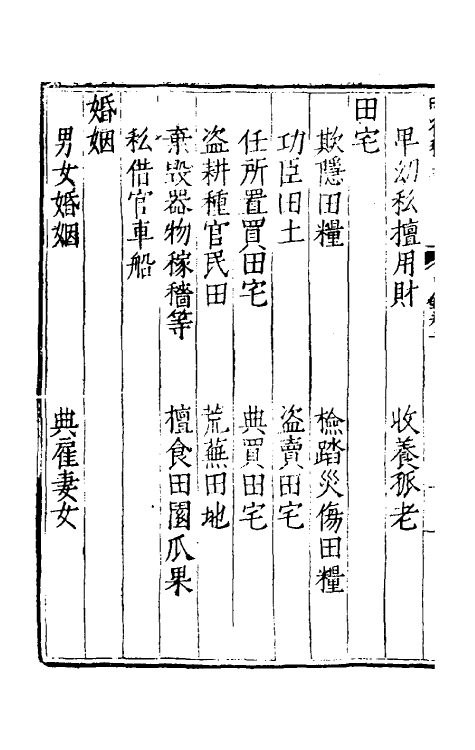 卑幼私擅用財　收養孤老
田宅
欺隱田糧　檢踏災傷田糧
功臣田土　盗賣田宅
任所置買田宅　典買田宅
盗耕種官民田　荒蕪田地
棄毀器物稼穡等　擅食田園瓜果
私借官車船
婚姻
男女婚姻　典雇妻女